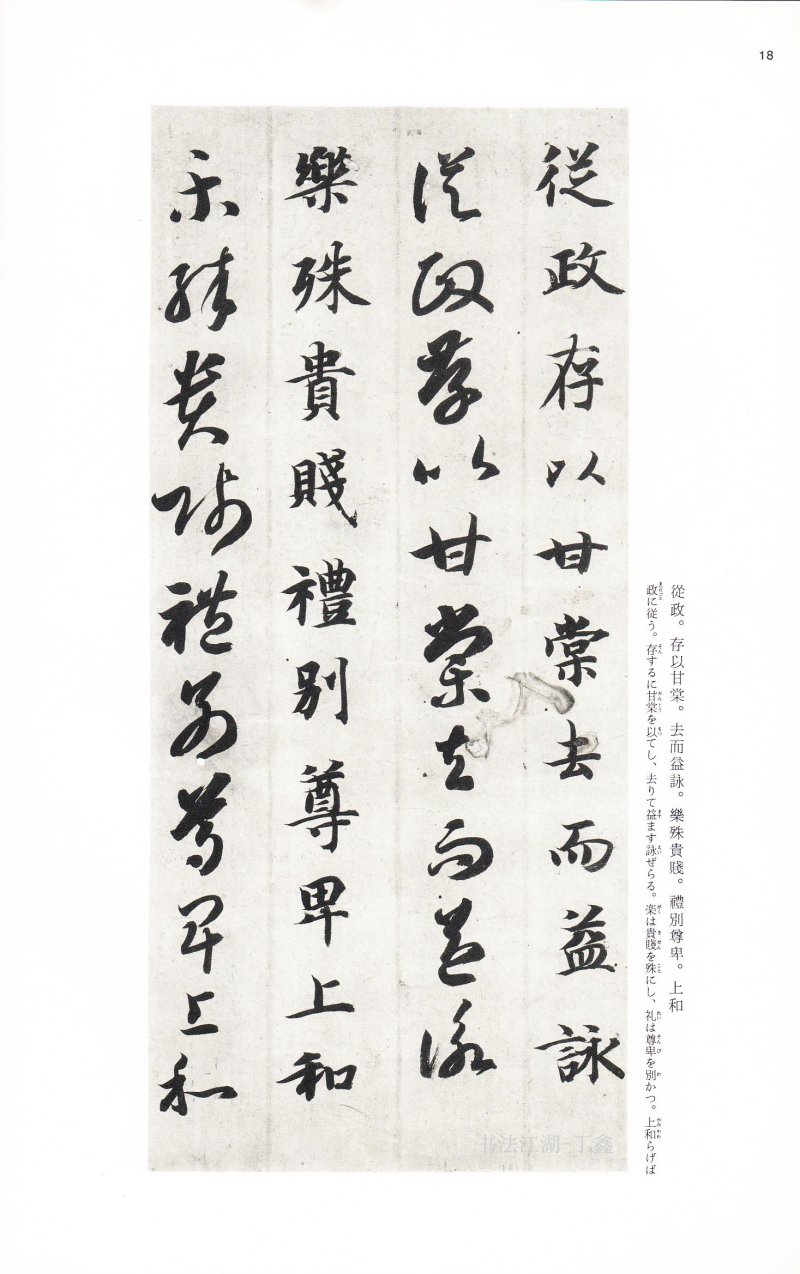 18
從政。存以甘棠。去而益詠。樂殊貴賤。禮別尊卑。上和
政に従う。存するに甘棠を以てし、去りて益ます詠ぜらる。楽は貴賤を殊にし、礼は尊卑を別かつ。上和らげば
従政存以甘棠去而益詠
従政存以甘棠去而益詠
樂殊貴賤禮別尊卑上和
樂殊貴賤禮別尊卑上和
书法江湖-丁鑫